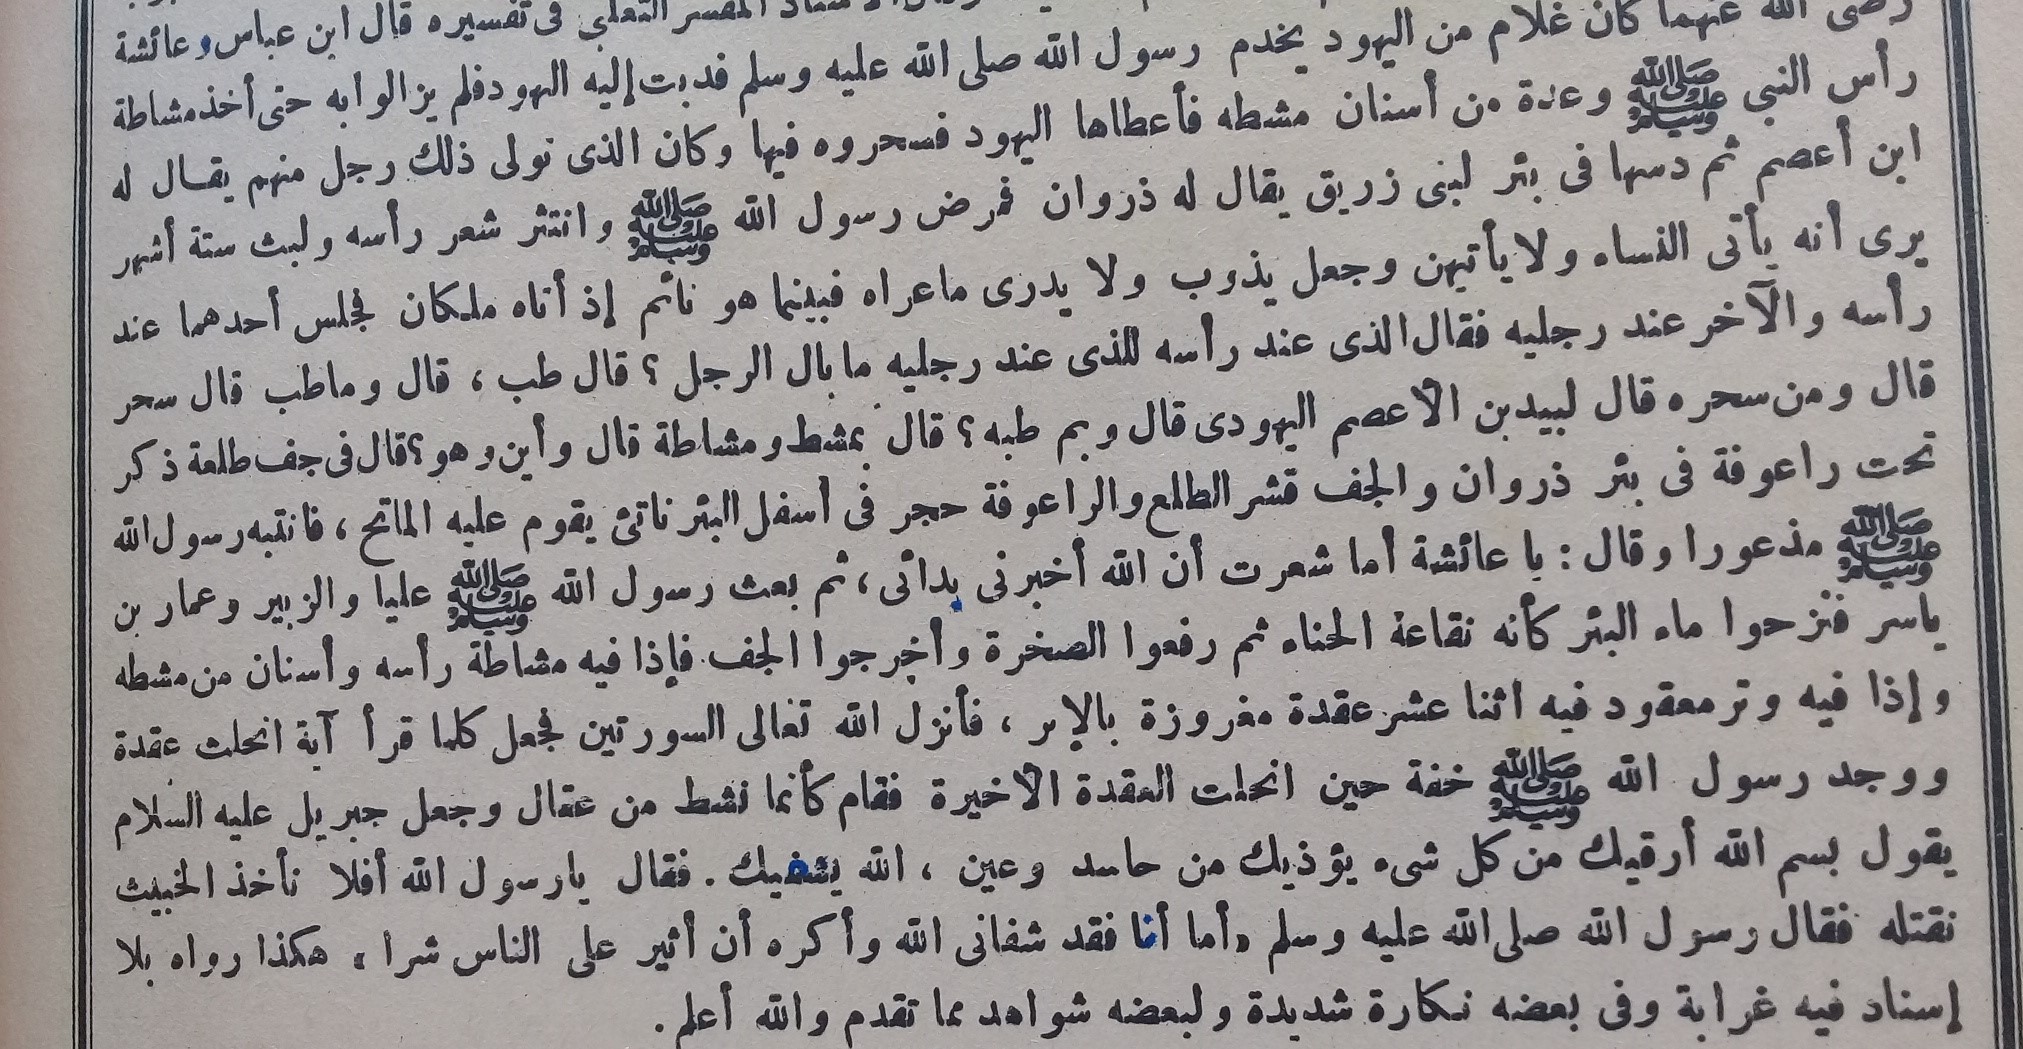 المفسر الثعلبي فى تفسيره قال ابن عباس وعائشة
رضى الله عنهما كان غلام من اليهود يخدم رسول الله صلى الله عليه وسلم فدبت إليه اليهود فلم يزالوا به حتى أخذ مشاطة
رأس النبى ﷺ وعدة من أسنان مشطه فأعطاها اليهود فسحروه فيها وكان الذى تولى ذلك رجل منهم يقال له
ابن أعصم ثم دسها فى بئر لبنى زريق يقال له ذروان فمرض رسول الله ﷺ وانتثر شعر رأسه ولبث ستة أشهر
يرى أنه يأتى النساء ولا يأتيهن وجعل يذوب ولا يدرى ما عراه فبينما هو نائم إذ أتاه ملكان فجلس أحدهما عند
رأسه والآخر عند رجليه فقال الذى عند رأسه للذى عند رجليه ما بال الرجل ؟ قال طب ، قال وما طب قال سحر
قال ومن سحره قال لبيد بن الأعصم اليهودى قال وبم طبه ؟ قال بمشط ومشاطة قال وأين هو ؟ قال فى جف طلعة ذكر
تحت راعوفة فى بئر ذروان والجف قشر الطلع والراعوفة حجر فى أسفل البئر ناتئ يقوم عليه الماتح ، فانتبه رسول الله
ﷺ مذعورا وقال : يا عائشة أما شعرت أن الله أخبرنى بدائى ، ثم بعث رسول الله ﷺ عليا والزبير وعمار بن
ياسر فنزحوا ماء البئر كأنه نقاعة الحناء ثم رفعوا الصخرة وأخرجوا الجف فإذا فيه مشاطة رأسه وأسنان من مشطه
وإذا فيه وتر معقود فيه اثنا عشر عقدة مغروزة بالإبر ، فأنزل الله تعالى السورتين فجعل كلما قرأ آية انحلت عقدة
ووجد رسول الله ﷺ خفة حين انحلت العقدة الأخيرة فقام كأنما نشط من عقال وجعل جبريل عليه السلام
يقول بسم الله أرقيك من كل شىء يؤذيك من حاسد وعين ، الله يشفيك . فقال يا رسول الله أفلا نأخذ الخبيث
نقتله فقال رسول الله صلى الله عليه وسلم « أما أنا فقد شفانى الله وأكره أن أثير على الناس شرا » هكذا رواه بلا
إسناد فيه غرابة وفى بعضه نكارة شديدة ولبعضه شواهد مما تقدم والله أعلم .